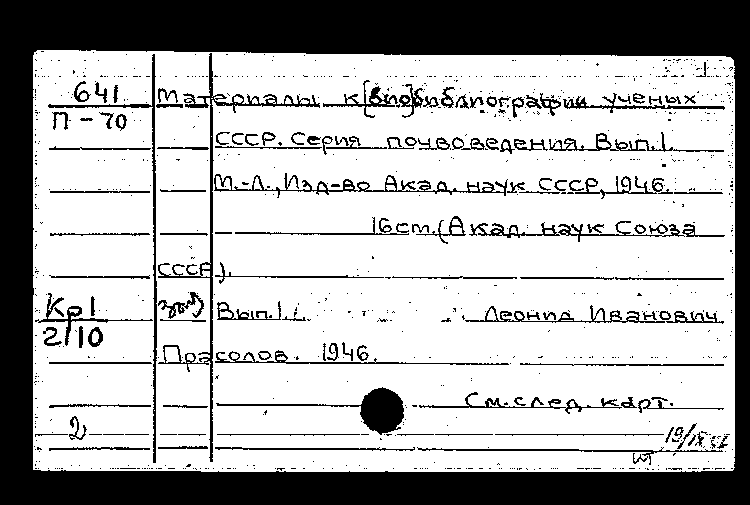 641 Материалы к [био]библиографии ученых
П-70
СССР. Серия почвоведения. Вып.1.
М.-Л., Изд-во Акад. наук СССР, 1946.
16 ст. (Акад. наук Союза
СССР).
Кр1 Вып.1. Леонид Иванович
2/10
Прасолов. 1946.
См. след. карт.
2
19/IX